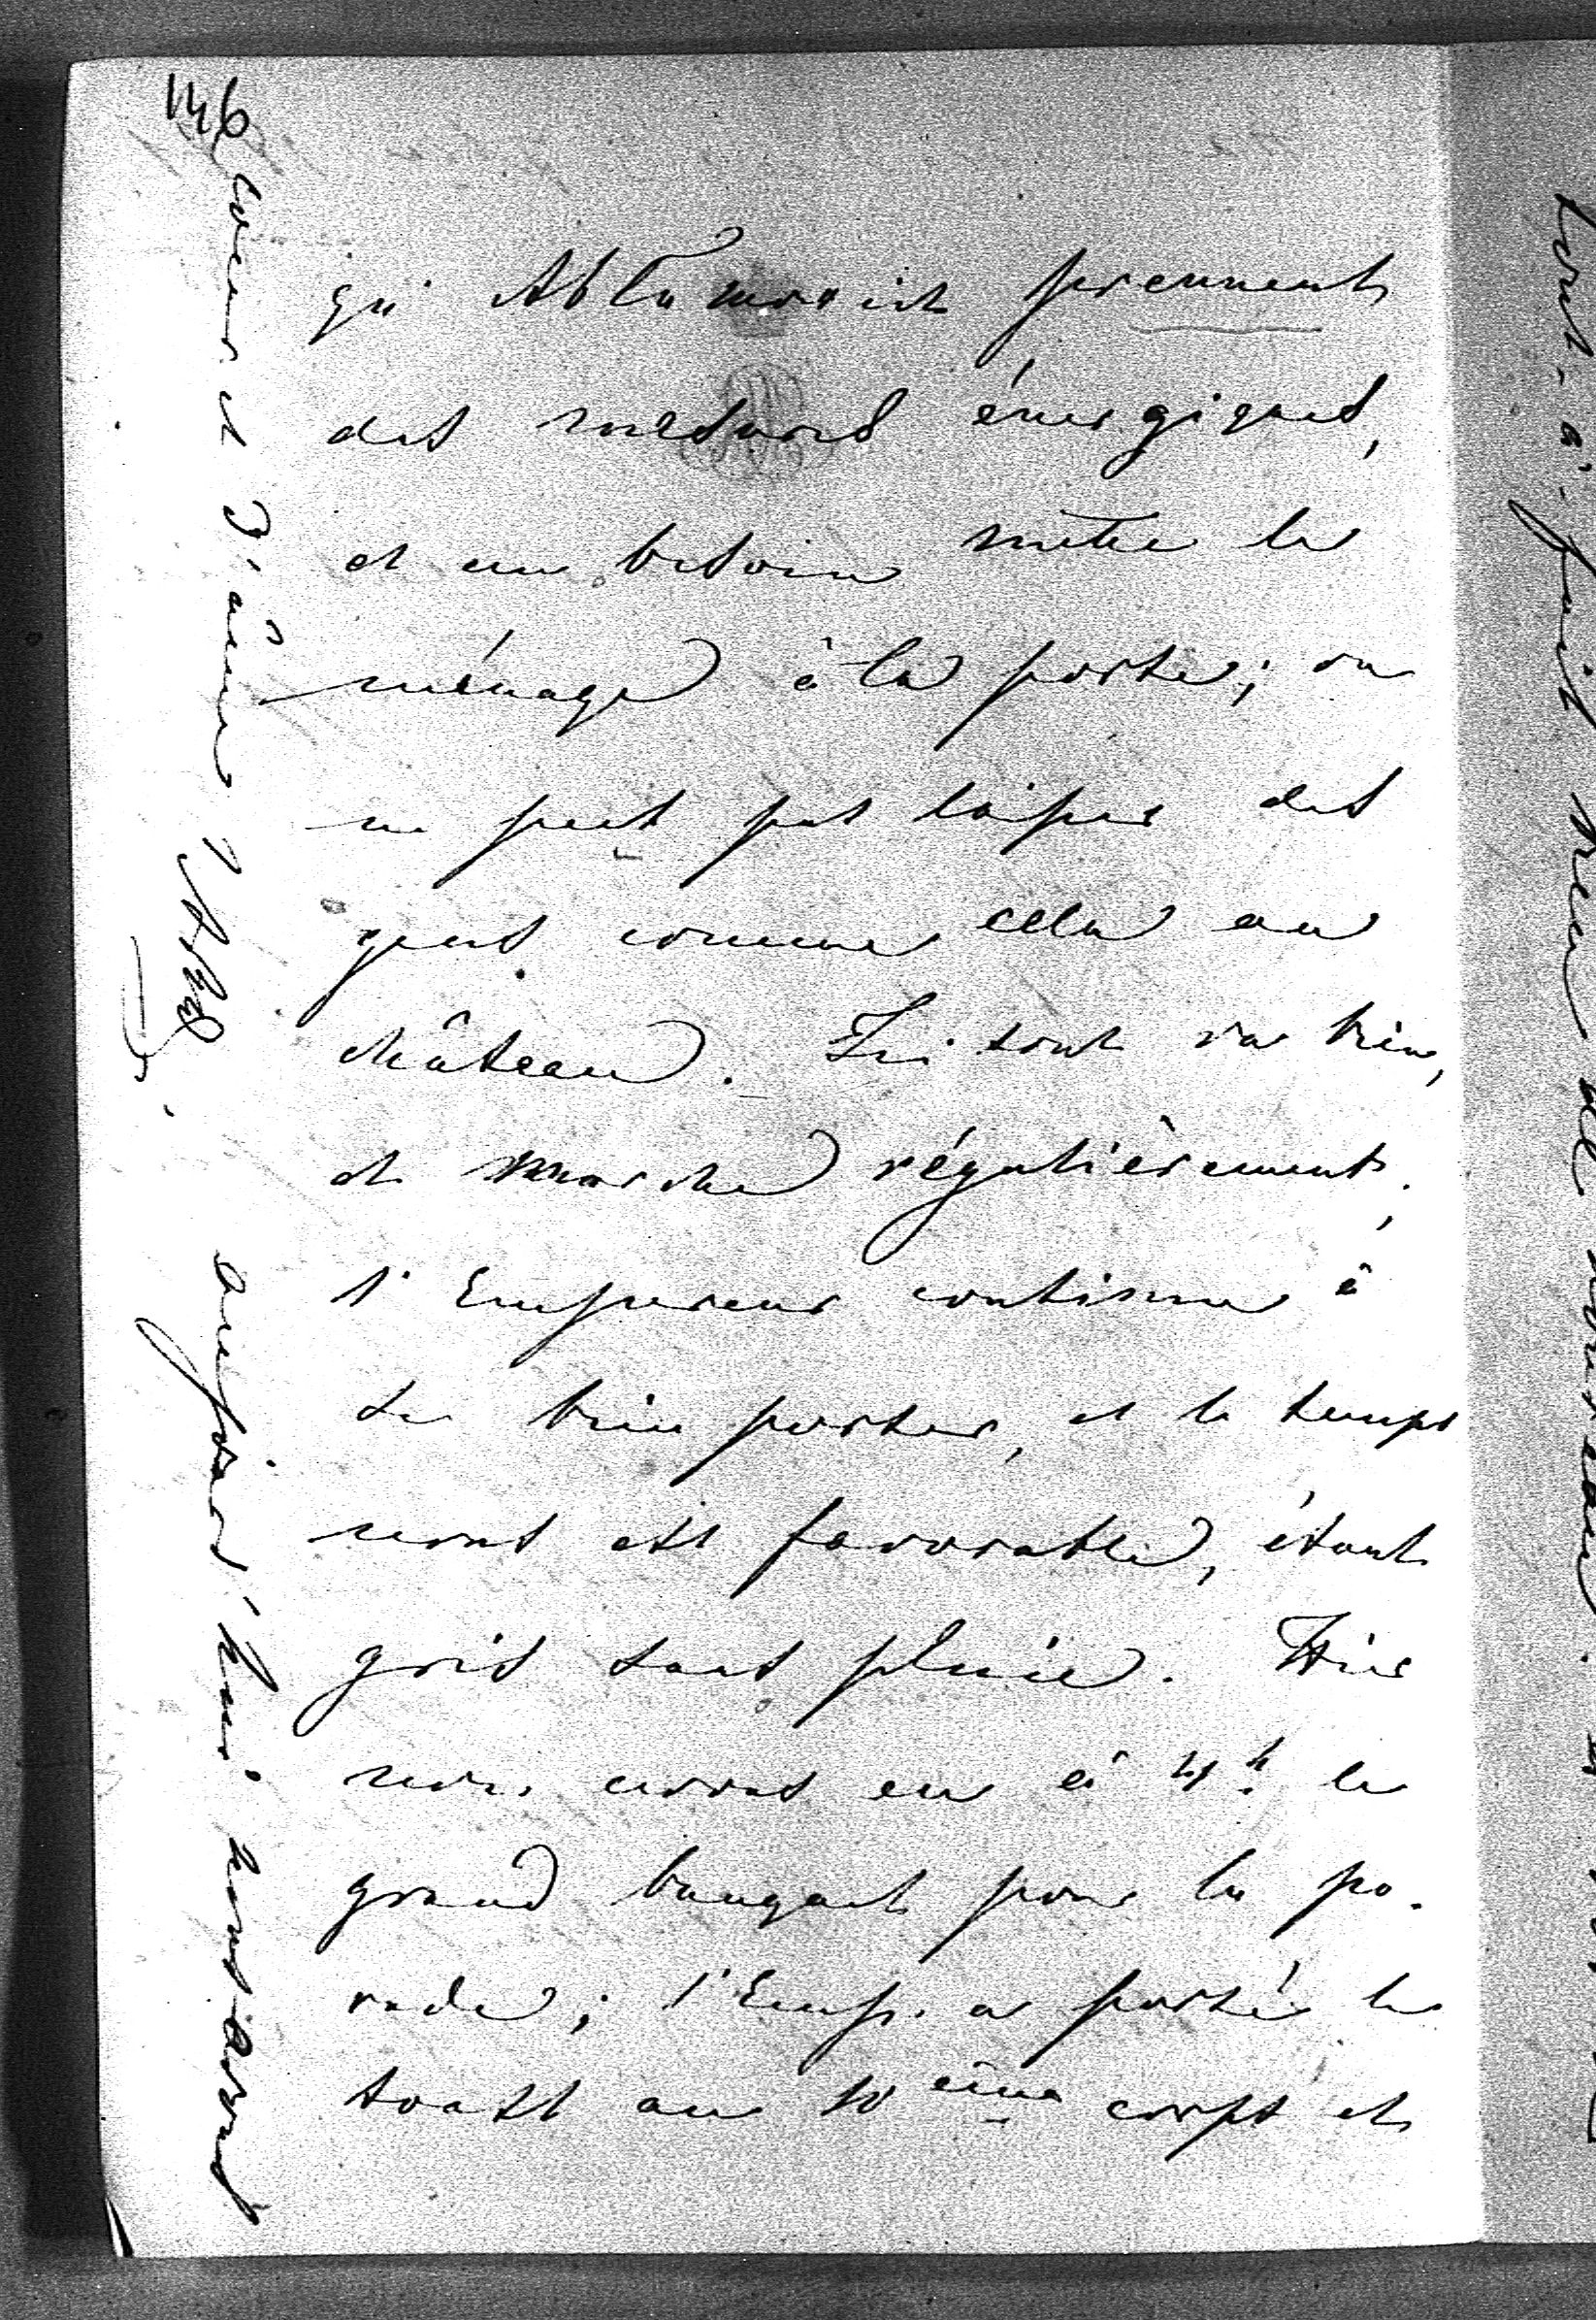 146
qu' Ablamowicz prennent
des mesures énergiques,
et au besoin mette le
ménage à la porte; on
ne peut pas laisser des
gens comme cela au
château. Ici tout va bien,
et marche régulièrement;
l'Empereur continue à
se bien porter, et le temps
nous est favorable, étant
gris sans pluie. Hier
nous avons eu à 4 h. le
grand banquet pour la pa-
rade; l'Emp. a porté le
toast au 10 ème corps et
coeur et d'âme
aujourd'hui nous avons
tout-à-fait